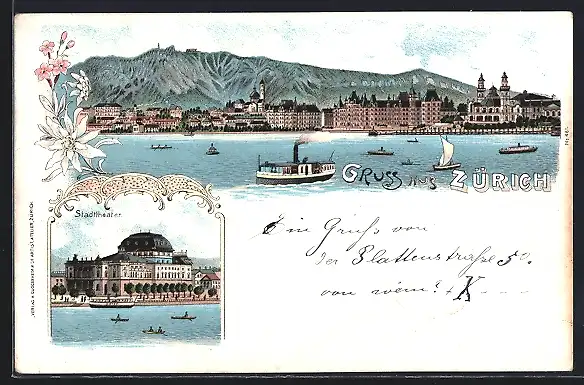 Gruss aus ZÜRICH
Stadttheater.
Ein Gruss von
der Plattenstraße 50.
von wem? K